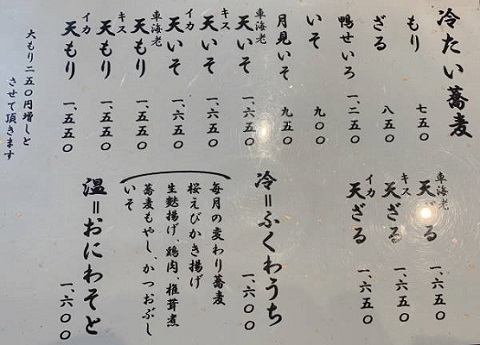 冷たい蕎麦
もり 七五〇
ざる 八五〇
鴨せいろ 一、二五〇
いそ 九〇〇
月見いそ 九五〇
車海老 天いそ 一、六五〇
キス 天いそ 一、六五〇
イカ 天いそ 一、六五〇
車海老 天もり 一、五五〇
キス 天もり 一、五五〇
イカ 天もり 一、五五〇
大もり二五〇円増しと
させて頂きます
車海老 天ざる 一、六五〇
キス 天ざる 一、六五〇
イカ 天ざる 一、六五〇
冷=ふくわうち 一、六〇〇
毎月の変わり蕎麦
桜えびかき揚げ
生麩揚げ、鶏肉、椎茸煮
蕎麦もやし、かつおぶし
いそ
温=おにわそと 一、六〇〇